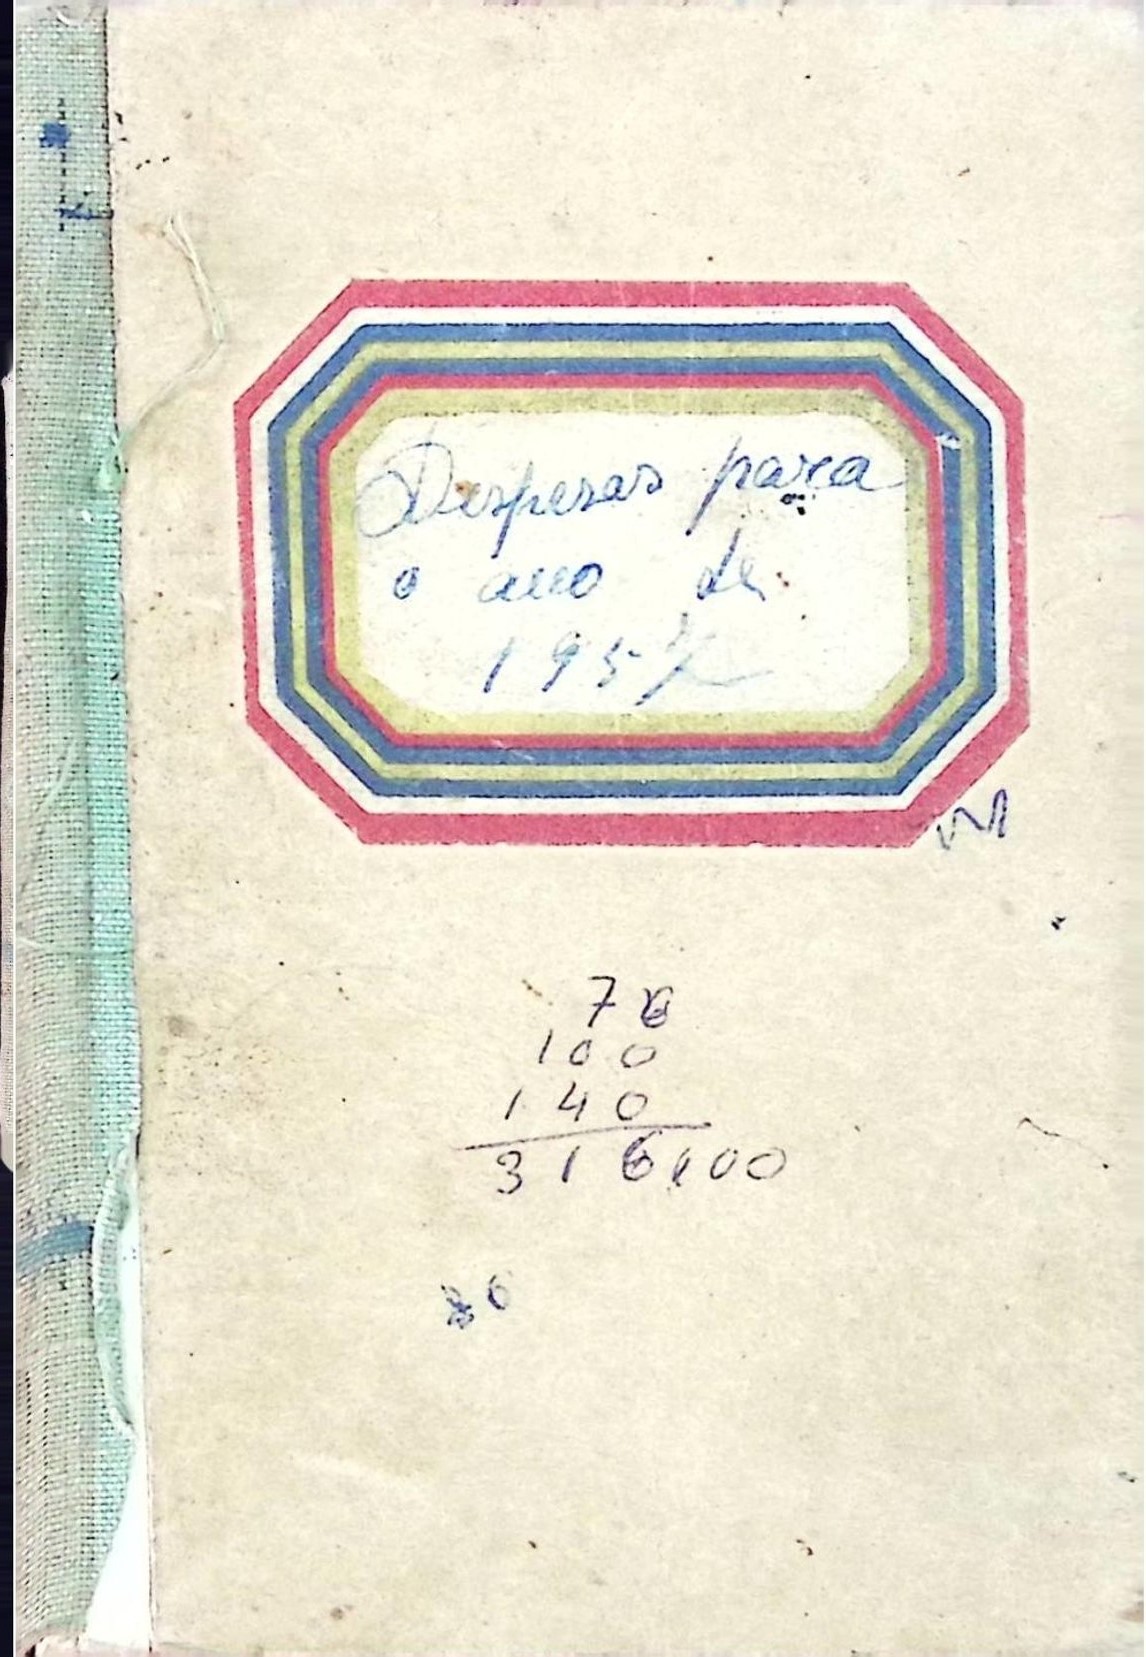 Despesas para
o ano de
1957
76
100
140
316,00
86